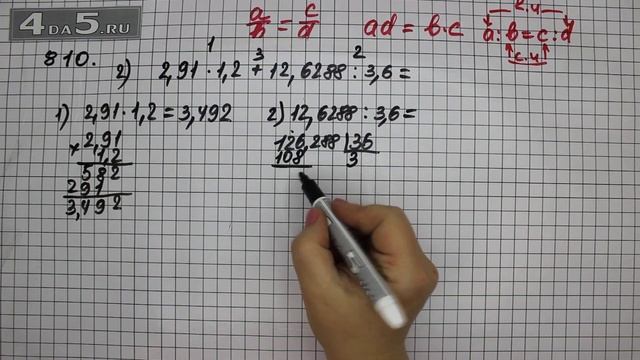 4DA5.RU
a/b = c/d ad = b·c к.ч.
a : b = c : d
с.ч
810.
1 3 2
2) 2,91 · 1,2 + 12,6288 : 3,6 =
1) 2,91 · 1,2 = 3,492 2) 12,6288 : 3,6 =
× 2,91 126,288 | 36
1,2 108 3
582
291
3,492